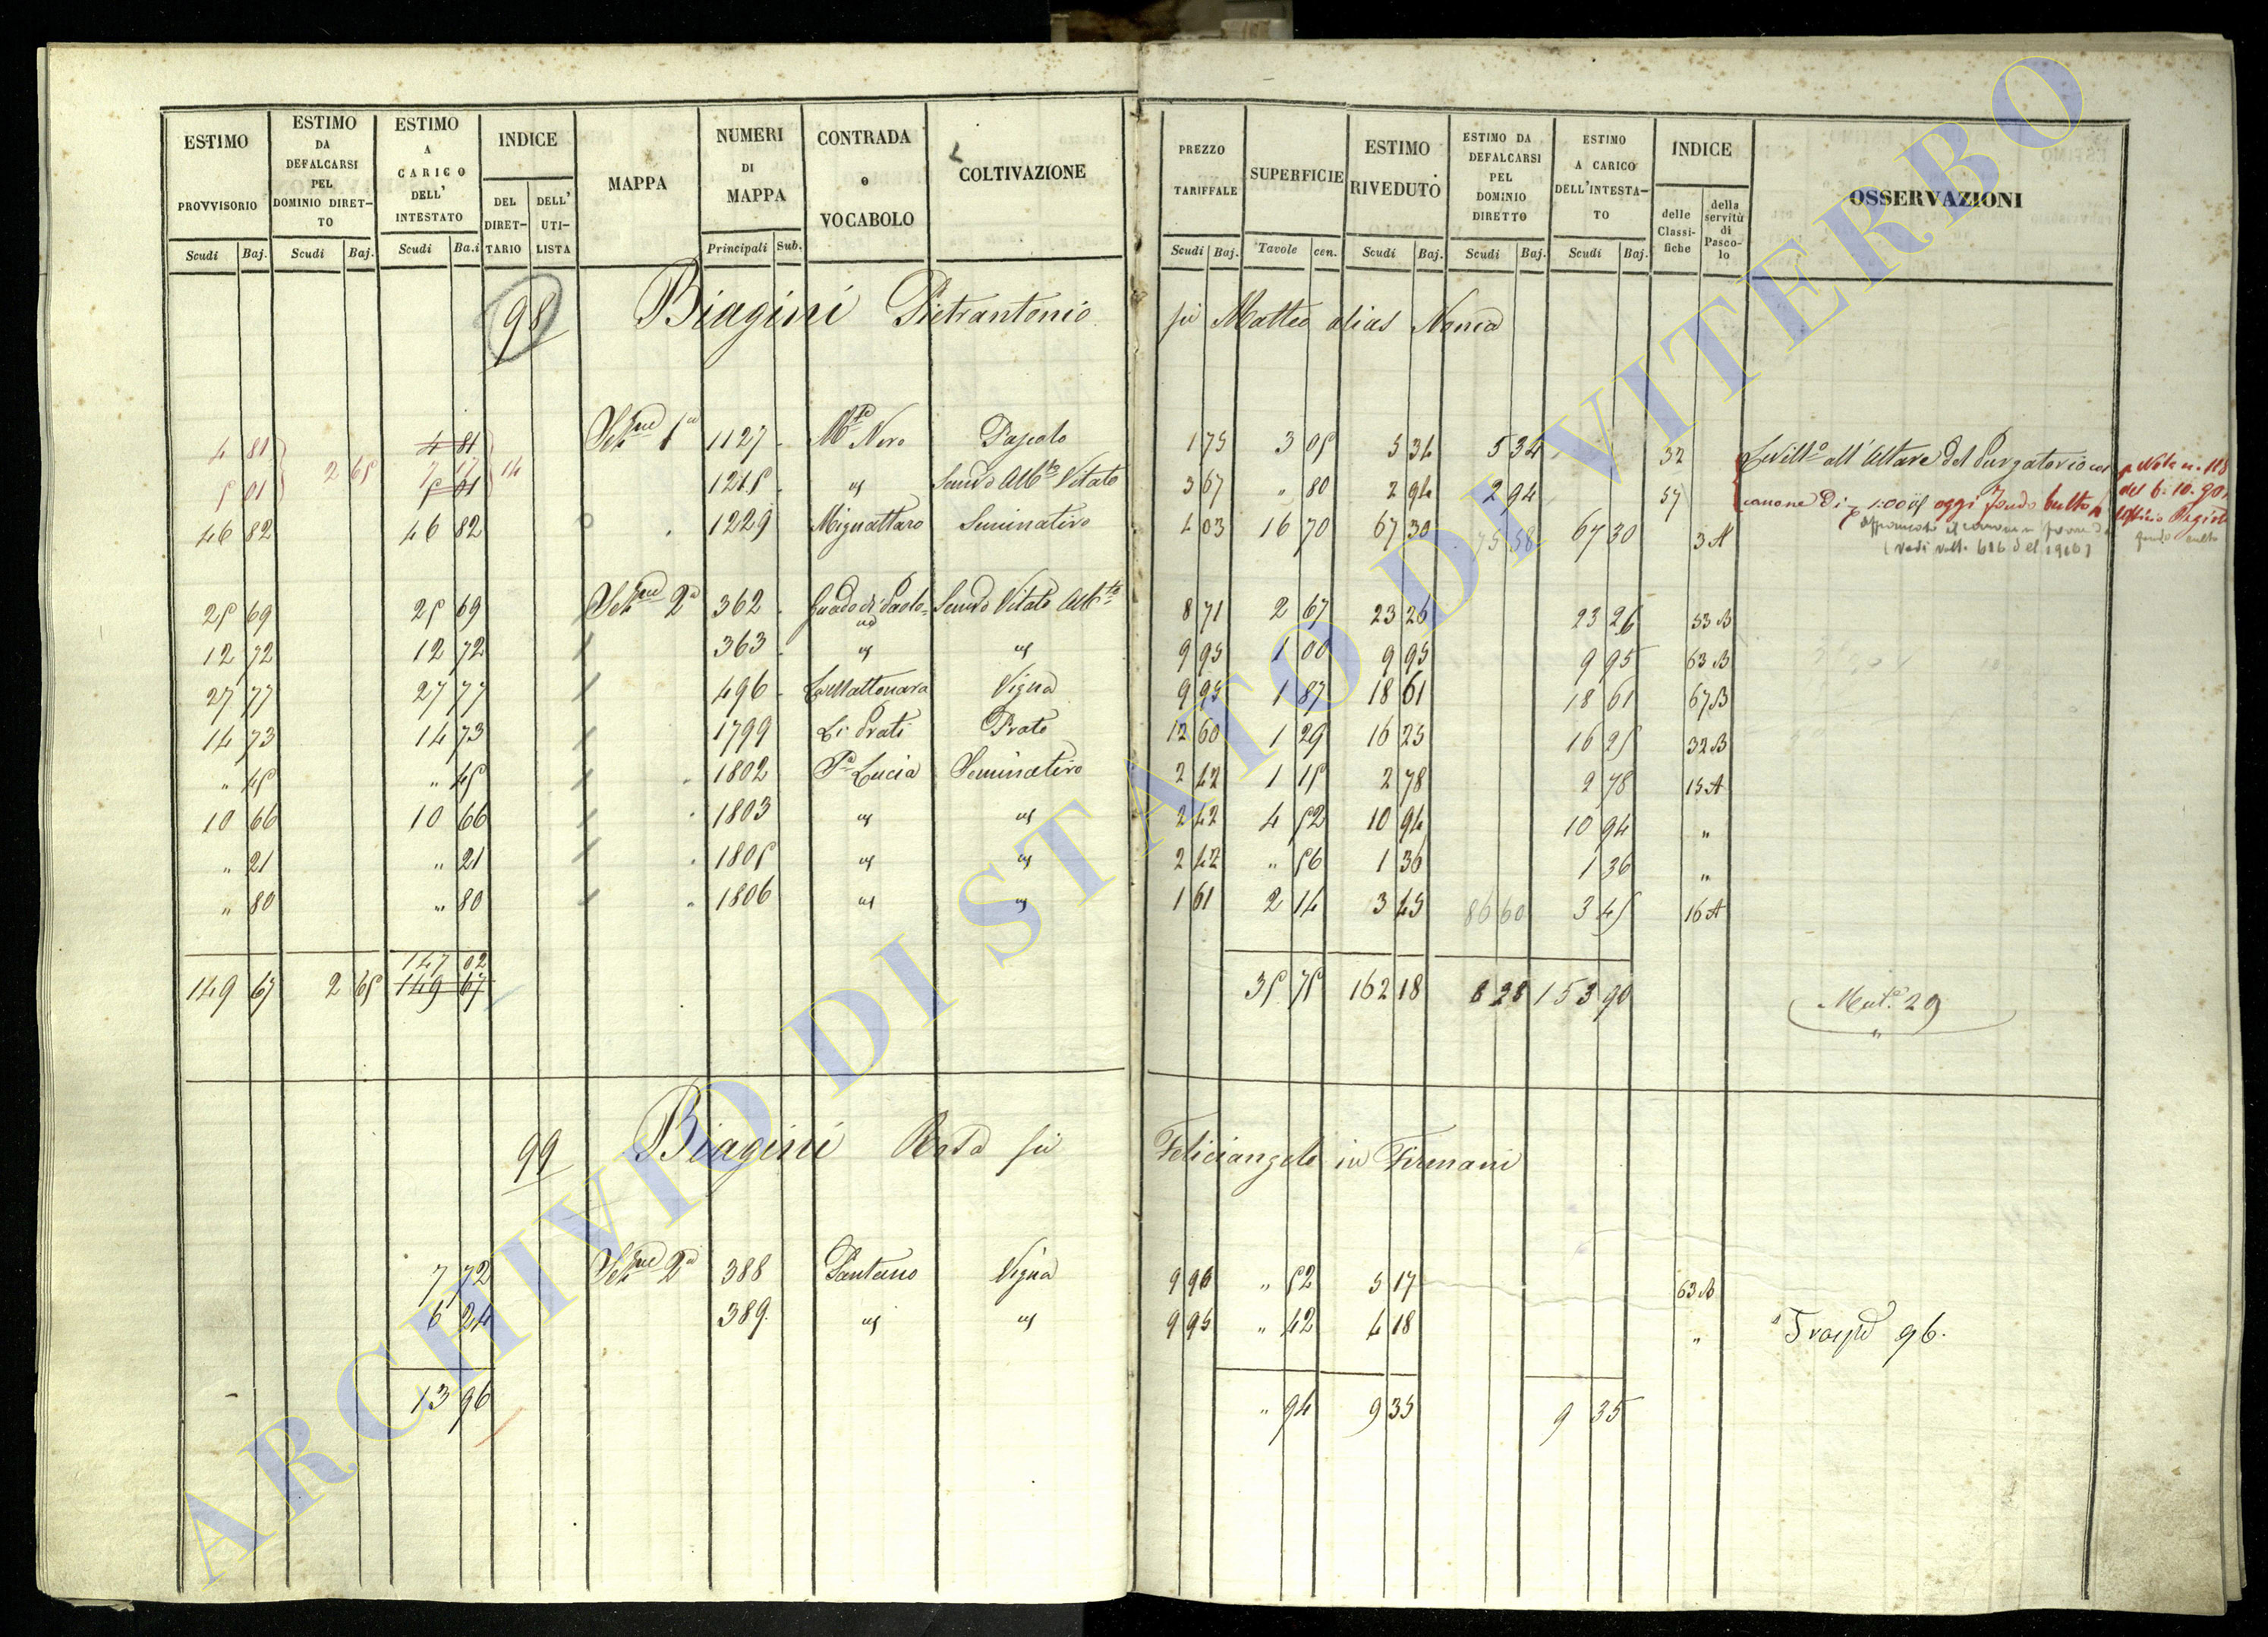 ESTIMO PROVVISORIO Scudi Baj.
ESTIMO DA DEFALCARSI PEL DOMINIO DIRETTO Scudi Baj.
ESTIMO A CARICO DELL' INTESTATO Scudi Ba.i
INDICE DEL DIRETTARIO DELL' UTILISTA
MAPPA
NUMERI DI MAPPA Principali Sub.
CONTRADA o VOCABOLO
COLTIVAZIONE
PREZZO TARIFFALE Scudi Baj.
SUPERFICIE Tavole cen.
ESTIMO RIVEDUTO Scudi Baj.
ESTIMO DA DEFALCARSI PEL DOMINIO DIRETTO Scudi Baj.
ESTIMO A CARICO DELL'INTESTATO Scudi Baj.
INDICE delle Classifiche della servitù di Pascolo
OSSERVAZIONI
98 Biagini Pietrantonio fu Matteo alias Nonea
4 81 2 65 4 81 14 Sezne 1a 1127 Mte Nero Pascolo 1 75 3 05 5 34 5 34 32 Livello all'Altare del Purgatorio con p. Nota n. 118
5 01 7 17 5 01 1215 " Semvo Albto Vitato 3 67 " 80 2 94 2 94 57 canone di 1:00 oggi fondo culto del 6. 10. 90
46 82 46 82 1229 Mignattaro Seminativo 4 03 16 70 67 30 75 58 67 30 3 A
(vedi volt. 616 del 1916)
25 69 25 69 Sezne 2a 362 Guado di Paolo Semvo Vitato Albto 8 71 2 67 23 26 23 26 53 B
12 72 12 72 363 " " 9 95 1 00 9 95 9 95 63 B
27 77 27 77 496 La Mattonara Vigna 9 95 1 87 18 61 18 61 67 B
14 73 14 73 1799 Li Prati Prato 12 60 1 29 16 25 16 25 32 B
" 45 " 45 1802 Sa Lucia Seminativo 2 42 1 15 2 78 2 78 15 A
10 66 10 66 1803 " " 2 42 4 52 10 94 10 94 "
" 21 " 21 1805 " " 2 42 " 56 1 36 1 36 "
" 80 " 80 1806 " " 1 61 2 14 3 45 86 60 3 45 16 A
147 02
149 67 2 65 149 67 35 75 162 18 8 28 153 90 Mut. 29
99 Biagini Rosa fu Feliciangelo in Firmani
7 72 Sezne 2a 388 Pantano Vigna 9 96 " 52 5 17 63 B
6 24 389 " " 9 95 " 42 4 18 " Trasp 96.
13 96 " 94 9 35 9 35
ARCHIVIO DI STATO DI VITERBO